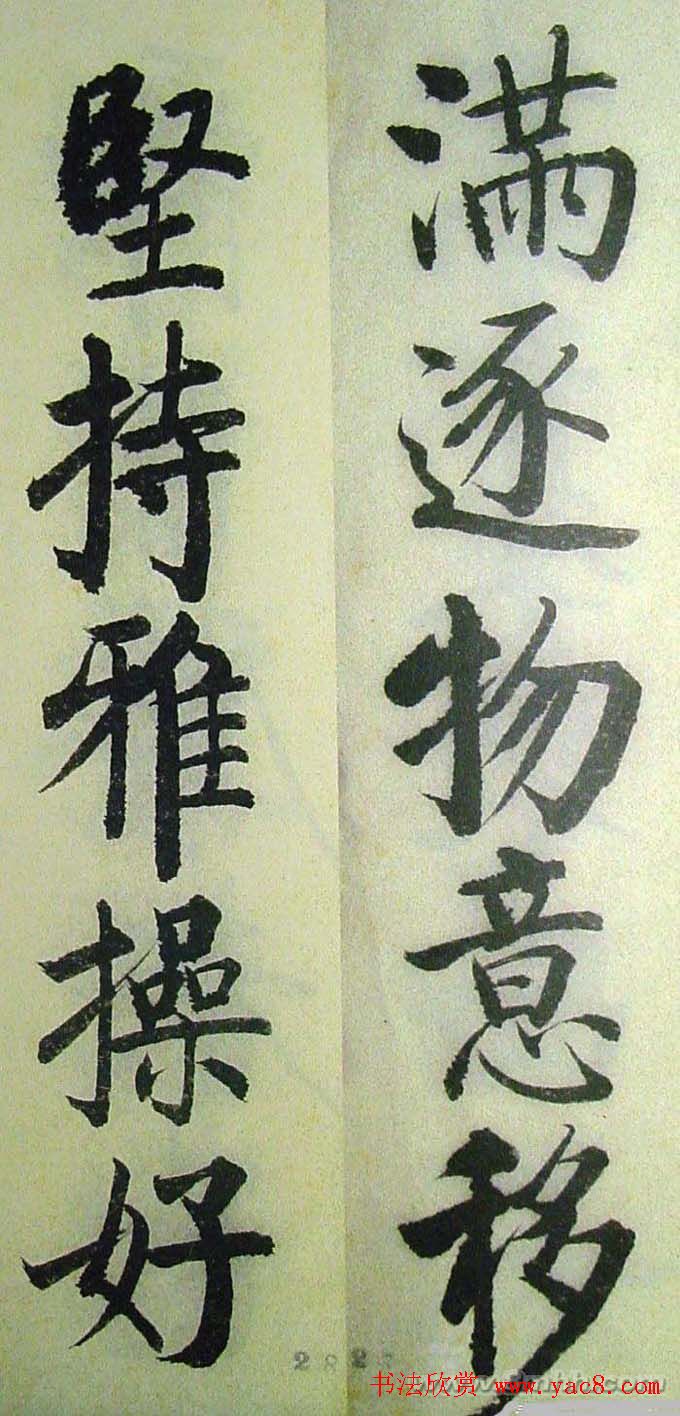 满逐物意移
坚持雅操好
书法欣赏 www.yac8.com